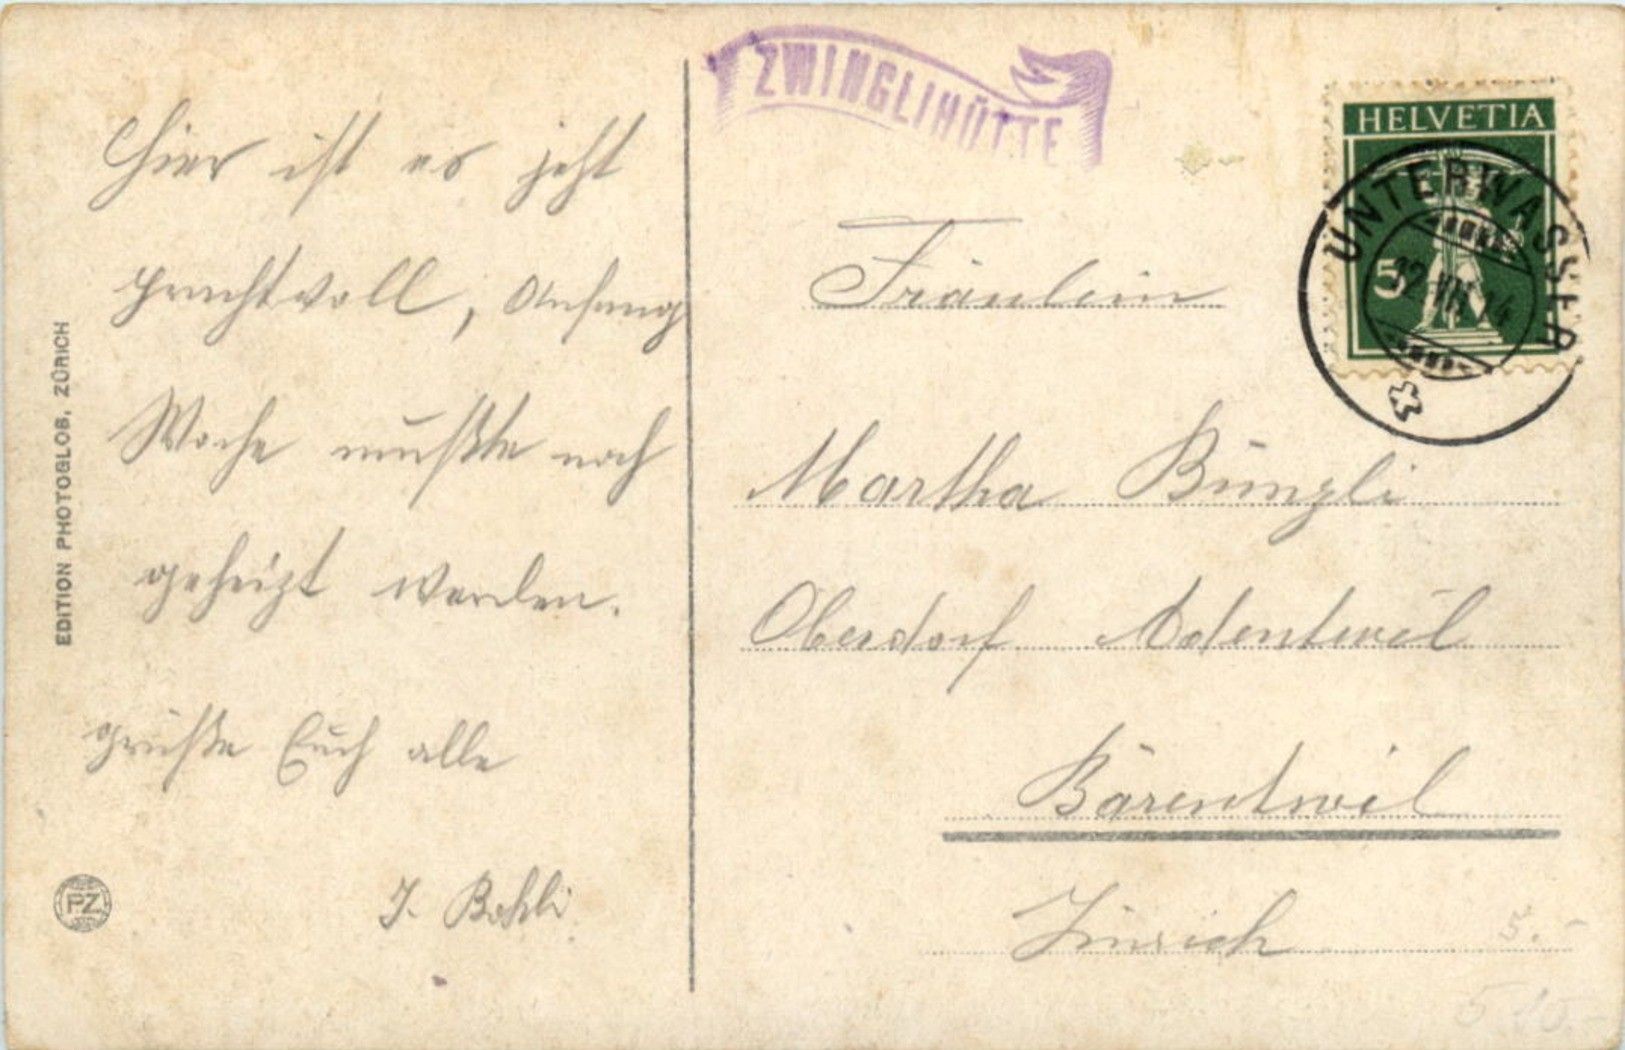 Hier ist es jetzt
prachtvoll, Anfang
Woche mußte noch
geheizt werden.
grüße Euch alle
J. Bohli
EDITION PHOTOGLOB, ZÜRICH
PZ
ZWINGLIHÜTTE
HELVETIA
5
UNTERWASSER
12 VII 14
Fräulein
Martha Bünzli
Oberdorf Adentwil
Bärentwil
Zürich
5.-